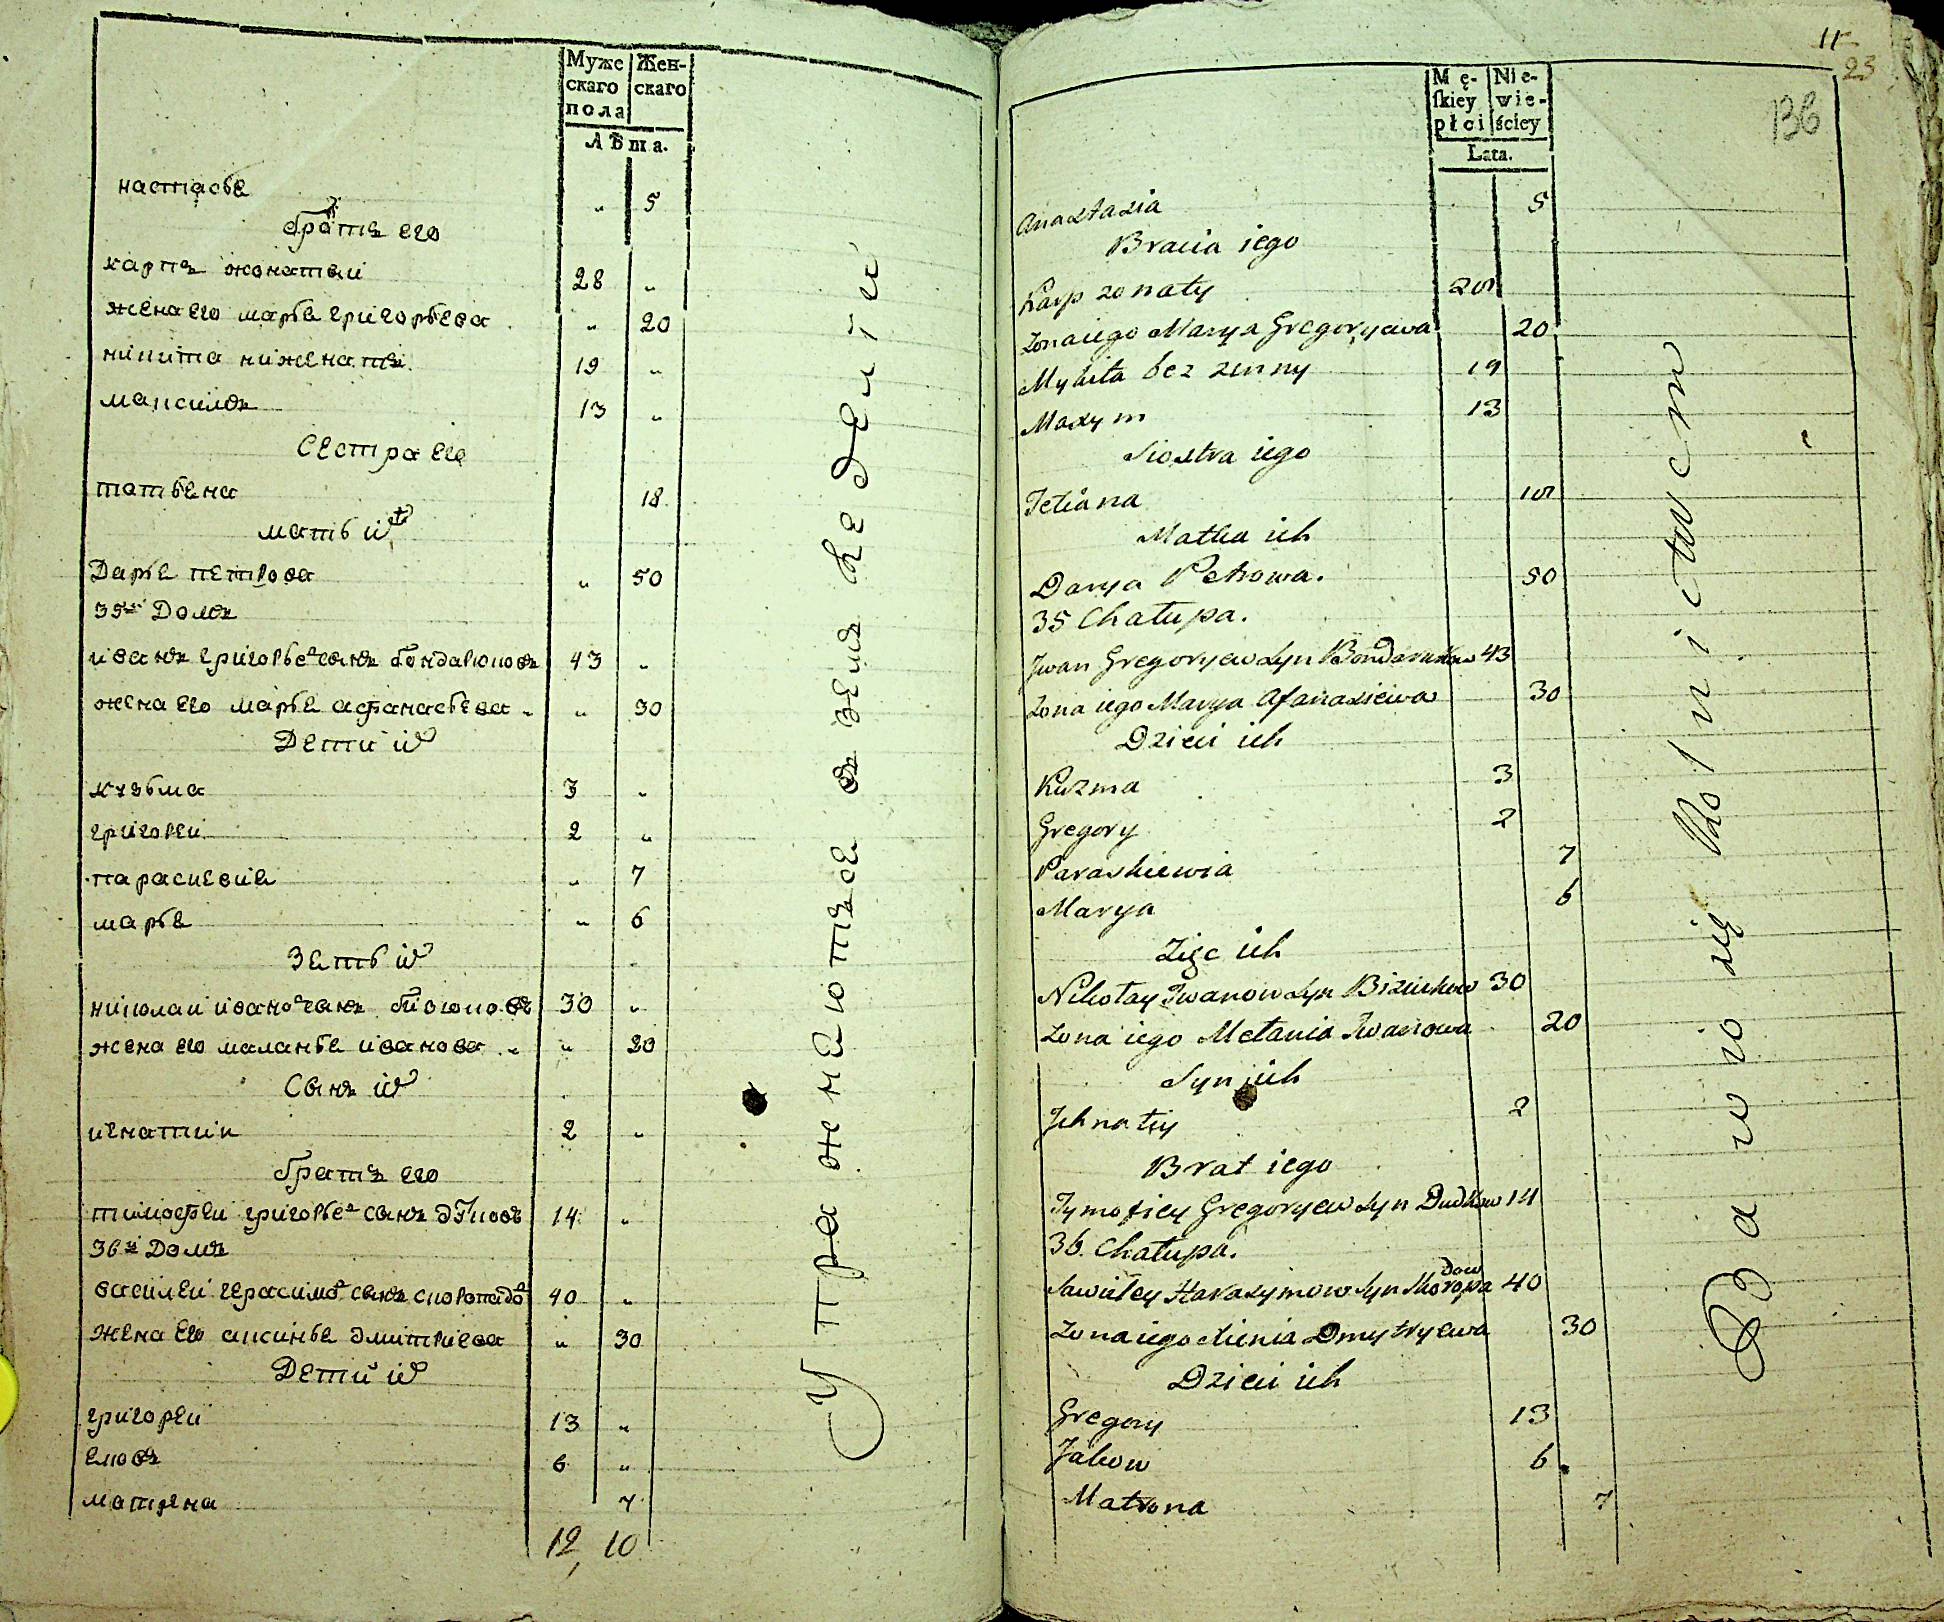 Муже Жен-
скаго скаго
пола
Лѣта.
настасья " 5
братья его
карпъ жонатый 28 "
жена его марья григорьева " 20
никита нижонатъ 19 "
максимъ 13 "
Сестра его
татьяна 18
мать их
Дарья петрова " 50
35й Домъ
иванъ григорьевъ сынъ бондарюковъ 43 "
жена его марья афанасьева " 30
Дети их
кузьма 3 "
григорей 2 "
параскевия " 7
марья " 6
Зеть их
николай ивановъ сынъ 30 "
жена его маланья иванова " 20
Сынъ их
игнатий 2 "
братъ его
тимофей григорьевъ сынъ дудковъ 14 "
36й Домъ
василей герасимовъ сынъ 40 "
жена его аксинья дмитриева " 30
Дети их
григорей 13 "
яковъ 6 "
матрена 7
12 10
Упражняютъся въ земледелии
11
23
136
Mę- Nie-
ſkiey wie-
płci ściey
Lata.
Anastasia 5
Bracia iego
Karp zonaty 28
Zona iego Marya Gregoryewa 20
Mykita bez zenny 19
Maxym 13
Siostra iego
Tetiana 18
Matka ich
Darya Petrowa. 50
35 Chałupa.
Jwan Gregoryew Syn Bondarukow 43
Zona iego Marya Afanasiewa 30
Dzieci ich
Kuzma 3
Gregory 2
Paraskiewia 7
Marya 6
Zięc ich
Nikołay Jwanow Syn 30
Zona iego Mełania Jwanowa 20
Syn ich
Jhnatiy 2
Brat iego
Tymofiey Gregoryew Syn Dudkow 14
36. Chałupa.
Harasymow Syn 40
Zona iego Dmytryewa 30
Dzieci ich
Gregory 13
Jakow 6
Matrona 7
Bawio się Rolnictwem